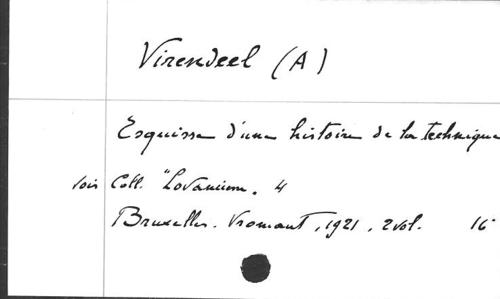 Virendeel (A)
Esquisse d'une histoire de la technique
Voir Coll. "Lovanium" 4
Bruxelles. Vromant, 1921, 2 vol. 16